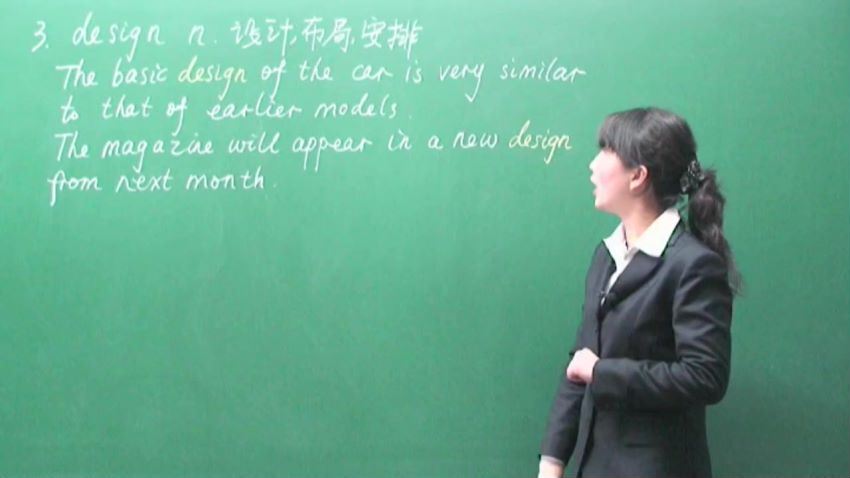 3. design n. 设计,布局,安排
The basic design of the car is very similar
to that of earlier models.
The magazine will appear in a new design
from next month.